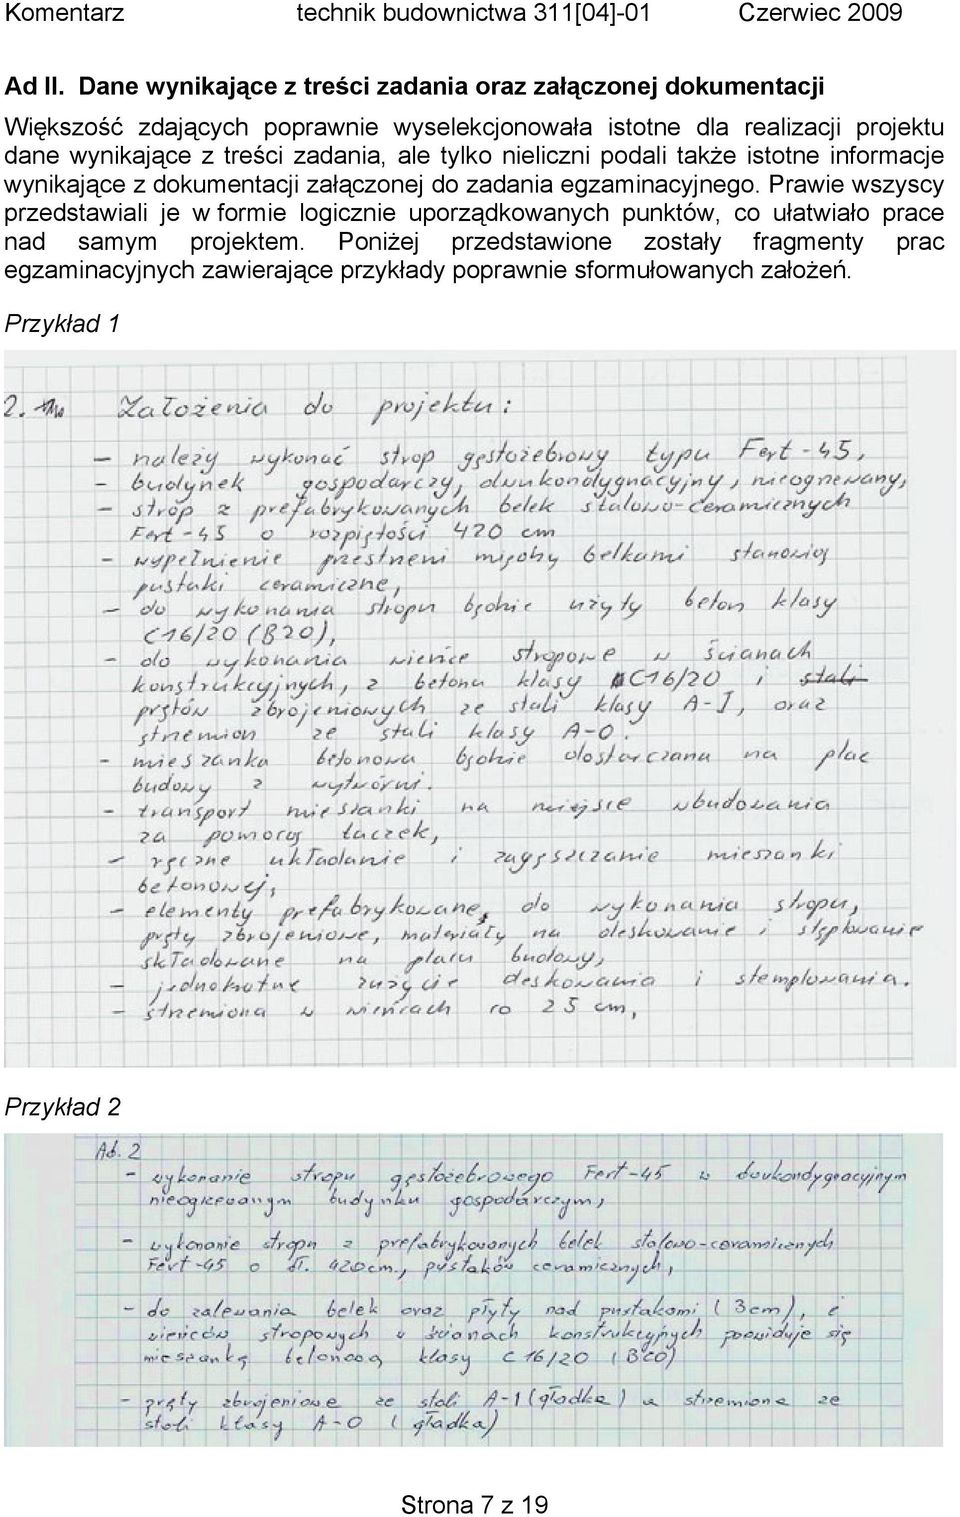 Komentarz technik budownictwa 311[04]-01 Czerwiec 2009
Ad II. Dane wynikające z treści zadania oraz załączonej dokumentacji
Większość zdających poprawnie wyselekcjonowała istotne dla realizacji projektu
dane wynikające z treści zadania, ale tylko nieliczni podali także istotne informacje
wynikające z dokumentacji załączonej do zadania egzaminacyjnego. Prawie wszyscy
przedstawiali je w formie logicznie uporządkowanych punktów, co ułatwiało prace
nad samym projektem. Poniżej przedstawione zostały fragmenty prac
egzaminacyjnych zawierające przykłady poprawnie sformułowanych założeń.
Przykład 1
2. Założenia do projektu:
- należy wykonać strop gęstożebrowy typu Fert-45,
- budynek gospodarczy, dwukondygnacyjny, nieogrzewany,
- strop z prefabrykowanych belek stalowo-ceramicznych
Fert-45 o rozpiętości 420 cm
- wypełnienie przestrzeni między belkami stanowią
pustaki ceramiczne,
- do wykonania stropu będzie użyty beton klasy
C16/20 (B20),
- do wykonania wieńce stropowe w ścianach
konstrukcyjnych, z betonu klasy C16/20 i stali
prętów zbrojeniowych ze stali klasy A-I, oraz
strzemion ze stali klasy A-0.
- mieszanka betonowa będzie dostarczana na plac
budowy z wytwórni.
- transport mieszanki na miejsce wbudowania
za pomocą taczek,
- ręczne układanie i zagęszczanie mieszanki
betonowej,
- elementy prefabrykowane, do wykonania stropu,
pręty zbrojeniowe, materiały na deskowanie i stęplowanie
składowane na placu budowy,
- jednokrotne zużycie deskowania i stemplowania.
- strzemiona w wieńcach co 25 cm,
Przykład 2
Ad. 2
- wykonanie stropu gęstożebrowego Fert-45 w dwukondygnacyjnym
nieogrzewanym budynku gospodarczym,
- wykonanie stropu z prefabrykowanych belek stalowo-ceramicznych
Fert-45 o dł. 420cm., pustaków ceramicznych,
- do zalewania belek oraz płyty nad pustakami (3cm), i
wieńców stropowych w ścianach konstrukcyjnych przewiduje się
mieszankę betonową klasy C 16/20 (B20)
- pręty zbrojeniowe ze stali A-1 (gładka) a strzemiona ze
stali klasy A-0 (gładka)
Strona 7 z 19